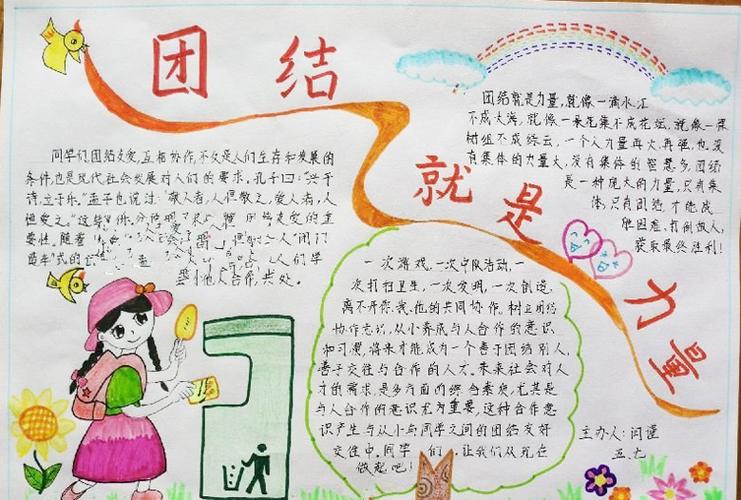 团结
就是
力量
团结就是力量,就像一滴水汇
不成大海,就像一朵花集不成花坛,就像一棵
树组不成绿云,一个人力量再大,再强,也没
有集体的力量大,没有集体的智慧多,团结
是一种庞大的力量,只有集
体,只有团结,才能战
胜困难,打倒敌人,
获取最终胜利!
同学们,团结友爱,互相协作,不仅是人们生存和发展的
条件,也是现代社会发展对人们的要求。孔子曰:"兴于
诗,立于乐。"孟子也说过:"敬人者,人恒敬之,爱人者,人
恒爱之。"这些
要性。随着
人们学
人合作,共处。
一次游戏,一次中队活动,一
次打扫卫生,一次发明,一次创造,
离不开你、我、他的共同协作。树立团结
协作意识,从小养成与人合作的意识
和习惯,将来才能成为一个善于团结别人,
善于交往与合作的人才。未来社会对人
才的需求,是多方面的综合素质,尤其是
与人合作的意识尤为重要,这种合作意
识产生与从小与同学之间的团结友好
交往中。同学们,让我们从现在
做起吧!
主办人:闫谨
五